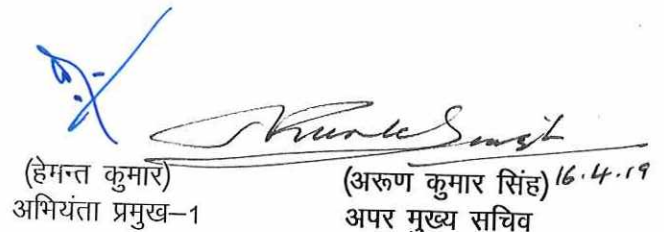 (हेमन्त कुमार)
अभियंता प्रमुख–1
(अरूण कुमार सिंह) 16.4.19
अपर मुख्य सचिव